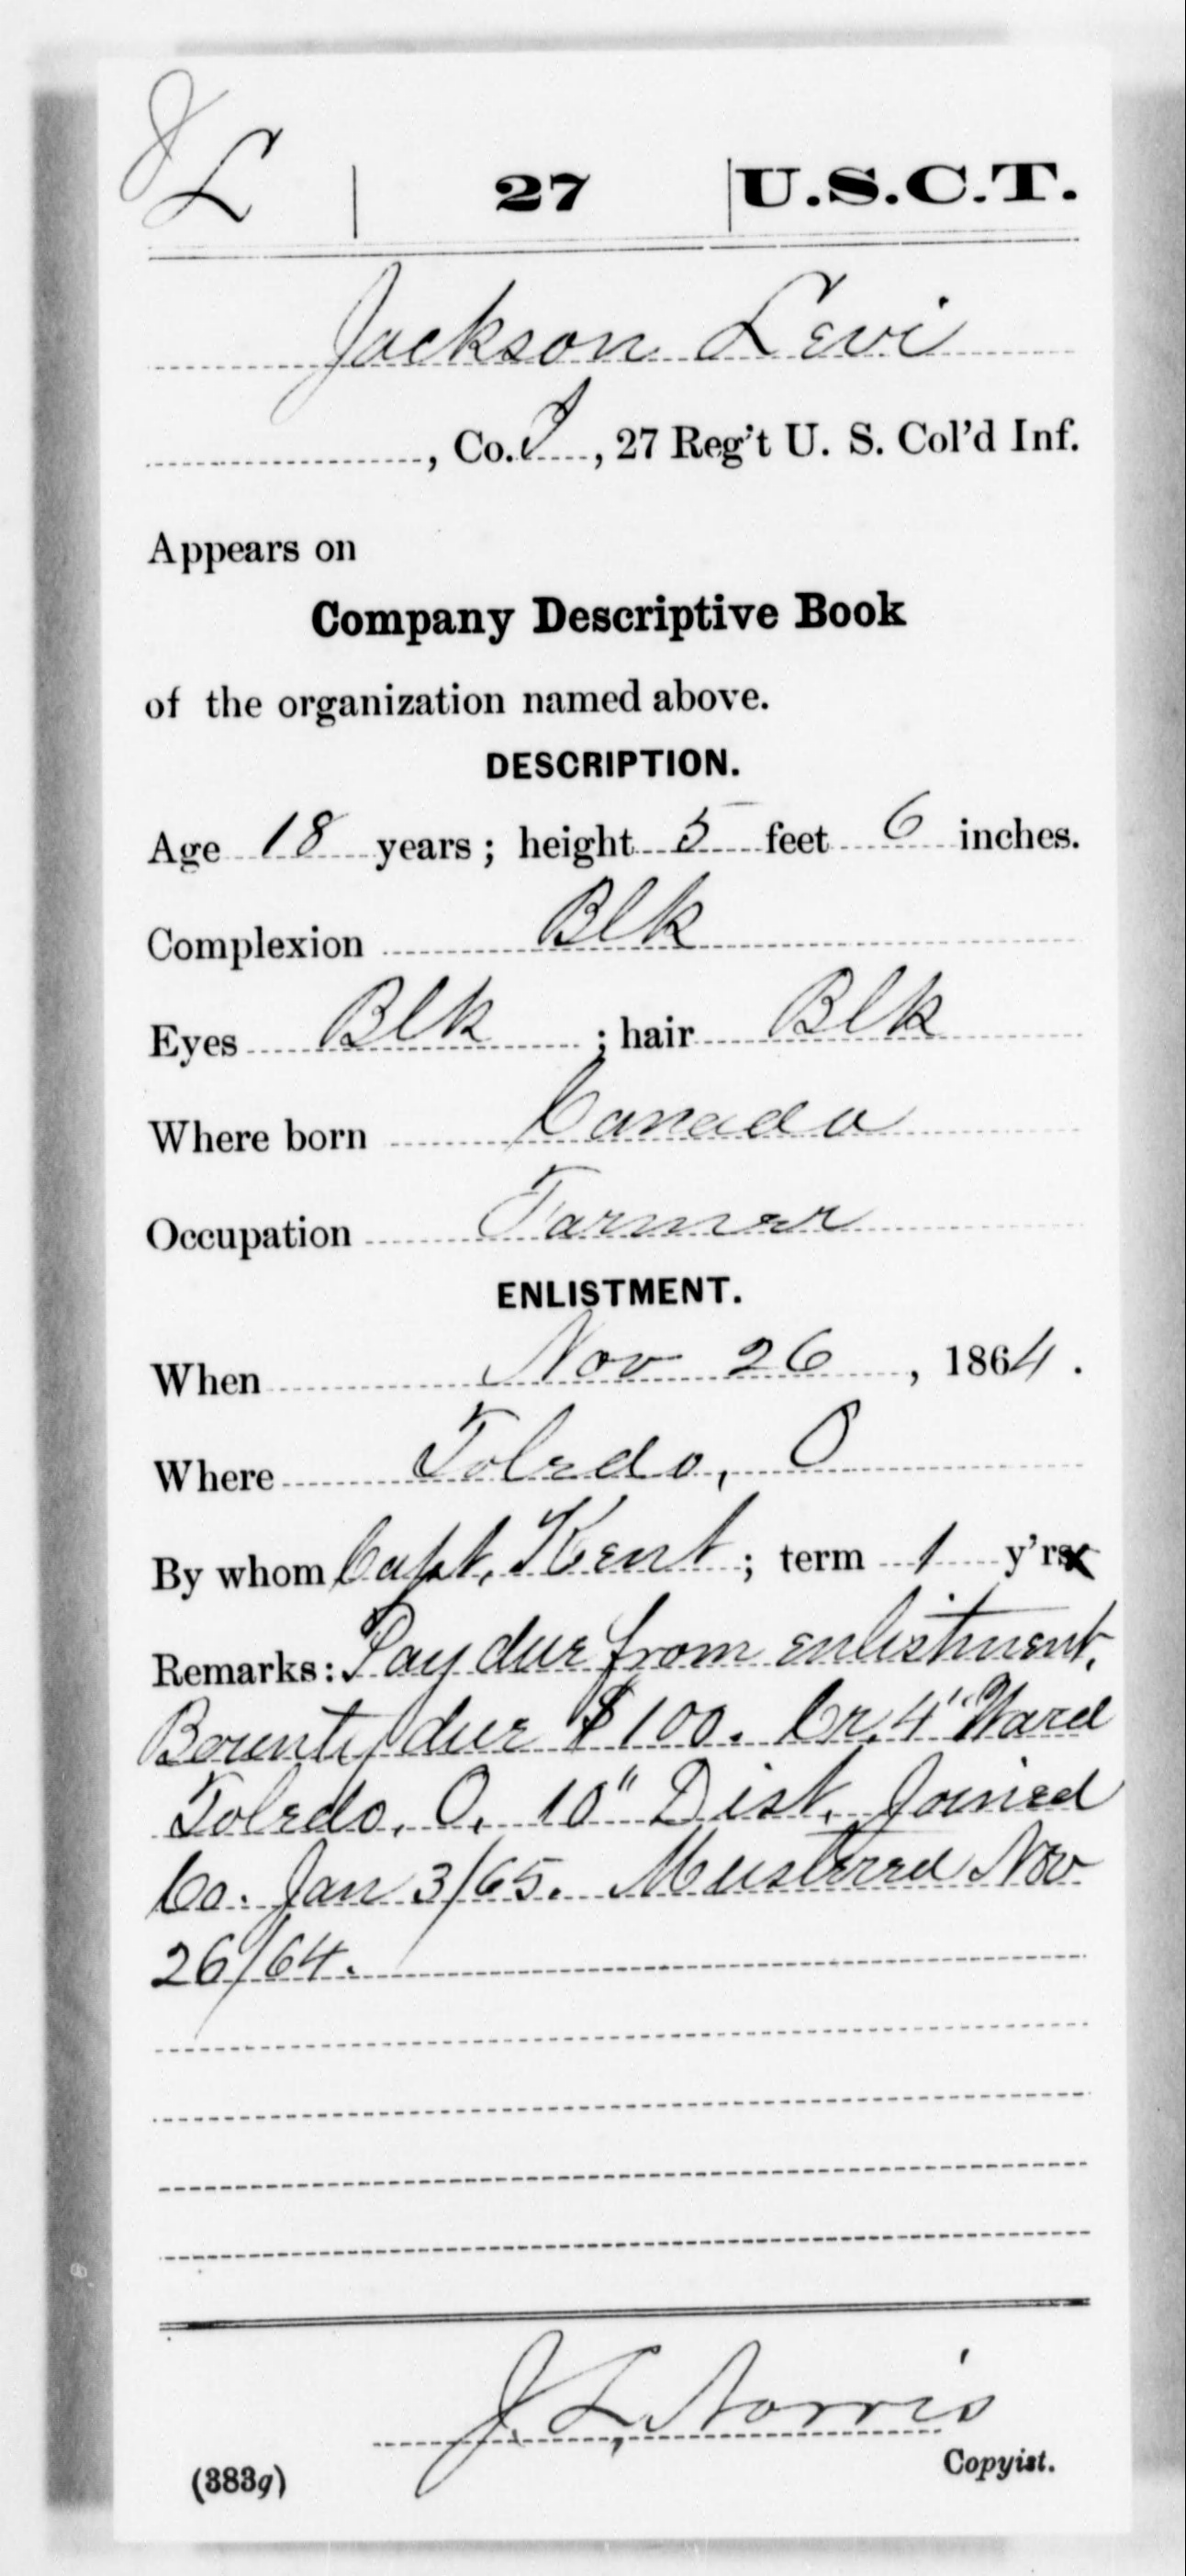 L | 27 | U.S.C.T.
Jackson Levi
, Co. I, 27 Reg't U. S. Col'd Inf.
Appears on
Company Descriptive Book
of the organization named above.
DESCRIPTION.
Age 18 years; height 5 feet 6 inches.
Complexion Blk
Eyes Blk ; hair Blk
Where born Canada
Occupation Farmer
ENLISTMENT.
When Nov 26, 1864.
Where Toledo, O
By whom Capt. Kent ; term 1 y'rs
Remarks: Pay due from enlistment.
Bounty due $100. Cr. 4" Ward
Toledo, O. 10" Dist. Joined
Co. Jan 3/65. Mustered Nov
26/64.
J. L. Norris
(383g) Copyist.